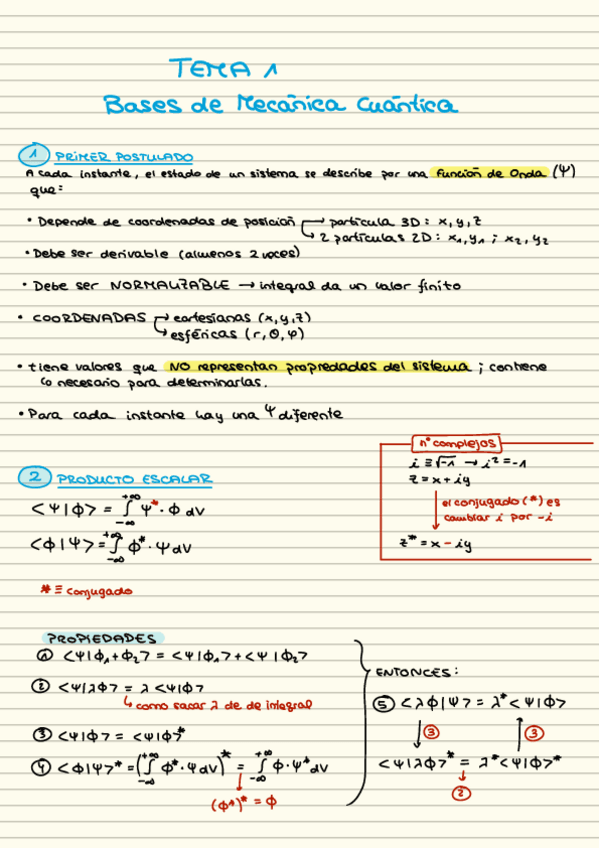 TEMA 1
Bases de Mecánica Cuántica
1 PRIMER POSTULADO
A cada instante, el estado de un sistema se describe por una Función de Onda (Ψ)
que:
• Depende de coordenadas de posición → partícula 3D: x, y, z
↳ 2 partículas 2D: x₁, y₁ ; x₂, y₂
• Debe ser derivable (almenos 2 veces)
• Debe ser NORMALIZABLE → integral da un valor finito
• COORDENADAS → cartesianas (x, y, z)
↳ esféricas (r, θ, φ)
• tiene valores que NO representan propiedades del sistema ; contiene
lo necesario para determinarlas.
• Para cada instante hay una Ψ diferente
nº complejos
i ≡ √-1 → i² = -1
z = x + iy
el conjugado (*) es
cambiar i por -i
z* = x - iy
2 PRODUCTO ESCALAR
<Ψ|Φ> = ∫₋∞⁺∞ Ψ* · Φ dV
<Φ|Ψ> = ∫₋∞⁺∞ Φ* · Ψ dV
* ≡ conjugado
PROPIEDADES
① <Ψ|Φ₁+Φ₂> = <Ψ|Φ₁> + <Ψ|Φ₂>
② <Ψ|λΦ> = λ <Ψ|Φ>
↳ como sacar λ de de integral
③ <Ψ|Φ> = <Ψ|Φ>*
④ <Φ|Ψ>* = (∫₋∞⁺∞ Φ* · Ψ dV)* = ∫₋∞⁺∞ Φ · Ψ* dV
(Φ*)* = Φ
ENTONCES:
⑤ <λΦ|Ψ> = λ* <Ψ|Φ>
③ ③
<Ψ|λΦ>* = λ* <Ψ|Φ>*
②